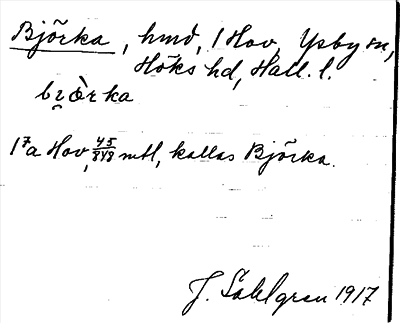 Björka, hmd, 1 Hov, Ysby sn,
Höks hd, Hall. l.
bẓörka
1⁷a Hov, 45/848 mtl, kallas Björka.
J. Sahlgren 1917